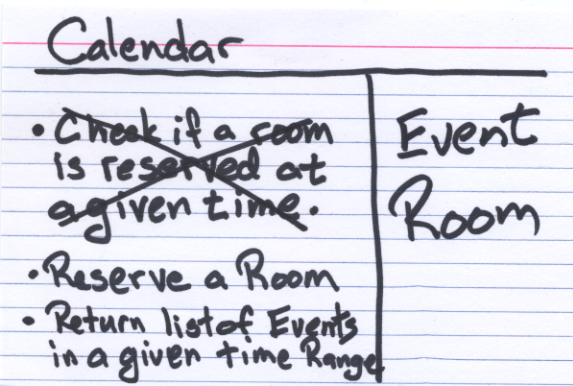 Calendar
• Check if a room
is reserved at
a given time.
• Reserve a Room
• Return list of Events
in a given time Range
Event
Room